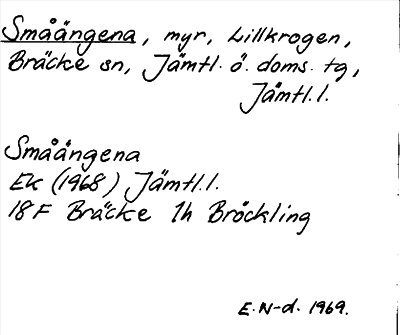 Småängena, myr, Lillkrogen,
Bräcke sn, Jämtl. ö. doms. tg,
Jämtl.l.
Småängena
Ek (1968) Jämtl.l.
18F Bräcke 1h Bröckling
E.N-d. 1969.